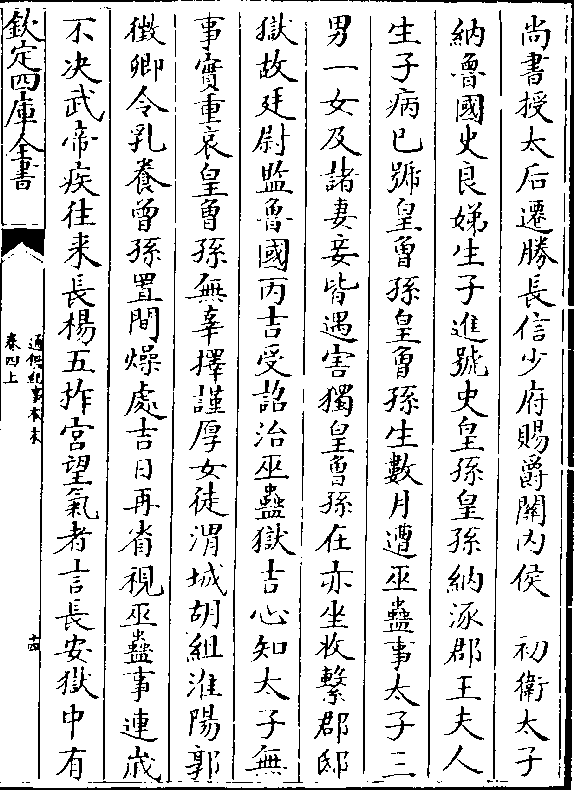 尚書授太后遷勝長信少府賜爵關内侯　初衛太子
納魯國史良娣生子進號史皇孫皇孫納涿郡王夫人
生子病已號皇曾孫皇曾孫生數月遭巫蠱事太子三
男一女及諸妻妾皆遇害獨皇曾孫在亦坐收繫郡邸
獄故廷尉監魯國丙吉受詔治巫蠱獄吉心知太子無
事實重哀皇曾孫無辜擇謹厚女徒渭城胡組淮陽郭
徵卿令乳養曾孫置閒燥處吉日再省視巫蠱事連歳
不决武帝疾往来長楊五柞宮望氣者言長安獄中有
欽定四庫全書
通鑑紀事本末
卷四上
十四